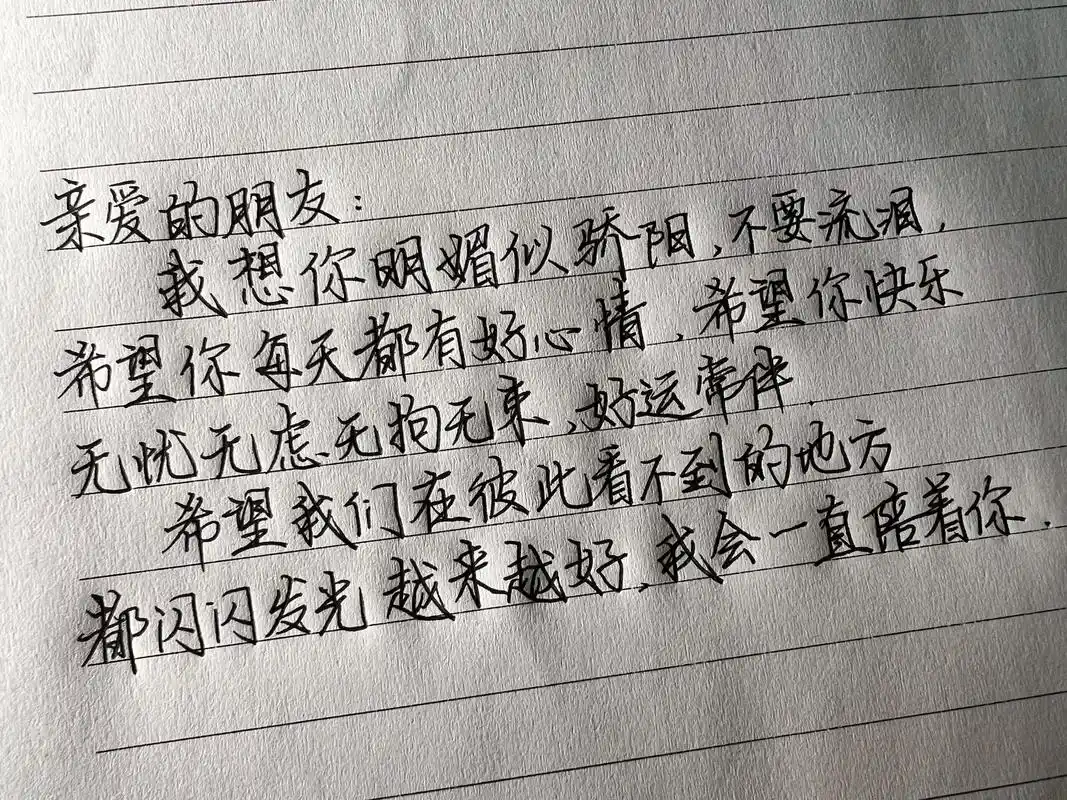 亲爱的朋友：
我想你明媚似骄阳，不要流泪，
希望你每天都有好心情，希望你快乐
无忧无虑、无拘无束，好运常伴.
希望我们在彼此看不到的地方
都闪闪发光越来越好，我会一直陪着你.